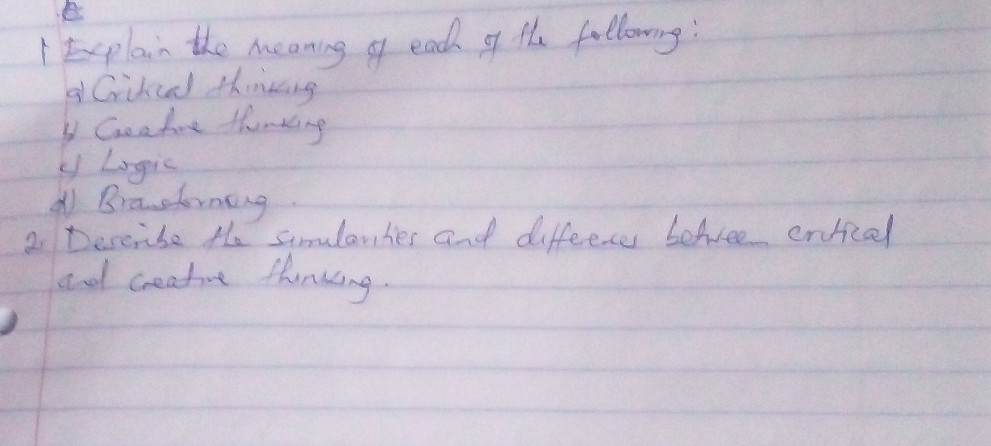 1 Explain the meaning of each of the following:
a) Critical thinking
b) Creative thinking
c) Logic
d) Brainstorming.
2. Describe the similarities and differences between critical
and creative thinking.